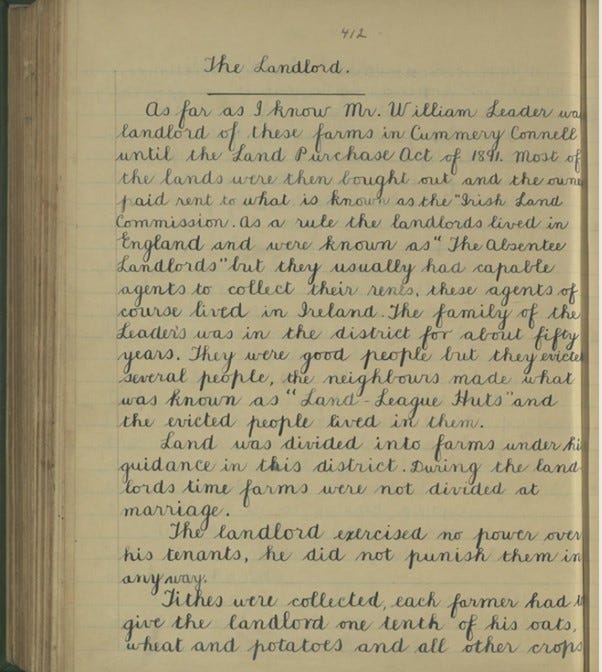 412
The Landlord.
As far as I know Mr. William Leader wa
landlord of these farms in Cummery Connell
until the Land Purchase Act of 1891. Most of
the lands were then bought out and the owne
paid rent to what is known as the "Irish Land
Commission. As a rule the landlords lived in
England and were known as "The Absentee
Landlords" but they usually had capable
agents to collect their rents, these agents of
course lived in Ireland. The family of the
Leader's was in the district for about fifty
years. They were good people but they evicte
several people, the neighbours made what
was known as "Land-League Huts" and
the evicted people lived in them.
Land was divided into farms under hi
guidance in this district. During the land-
lords time farms were not divided at
marriage.
The landlord exercised no power over
his tenants, he did not punish them in
any way.
Tithes were collected, each farmer had t
give the landlord one tenth of his oats,
wheat and potatoes and all other crops